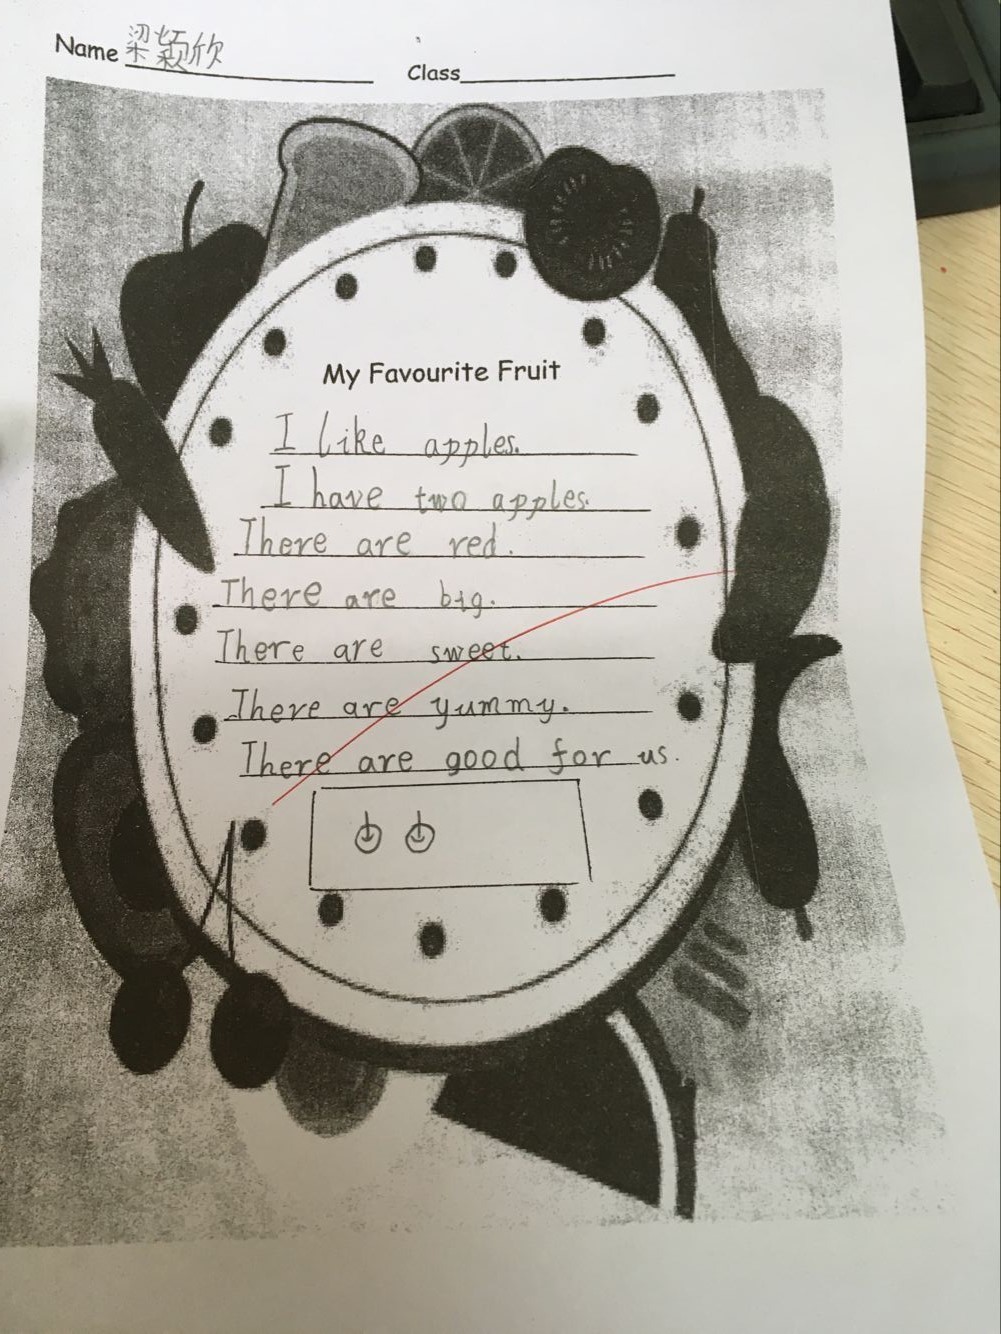 Name 梁颖欣 Class
My Favourite Fruit
I like apples.
I have two apples.
There are red.
There are big.
There are sweet.
There are yummy.
There are good for us.